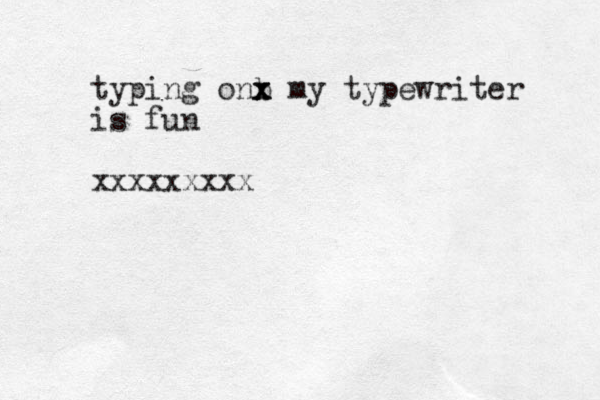 typing on my typewriter
is fun
xxxxxxxxx